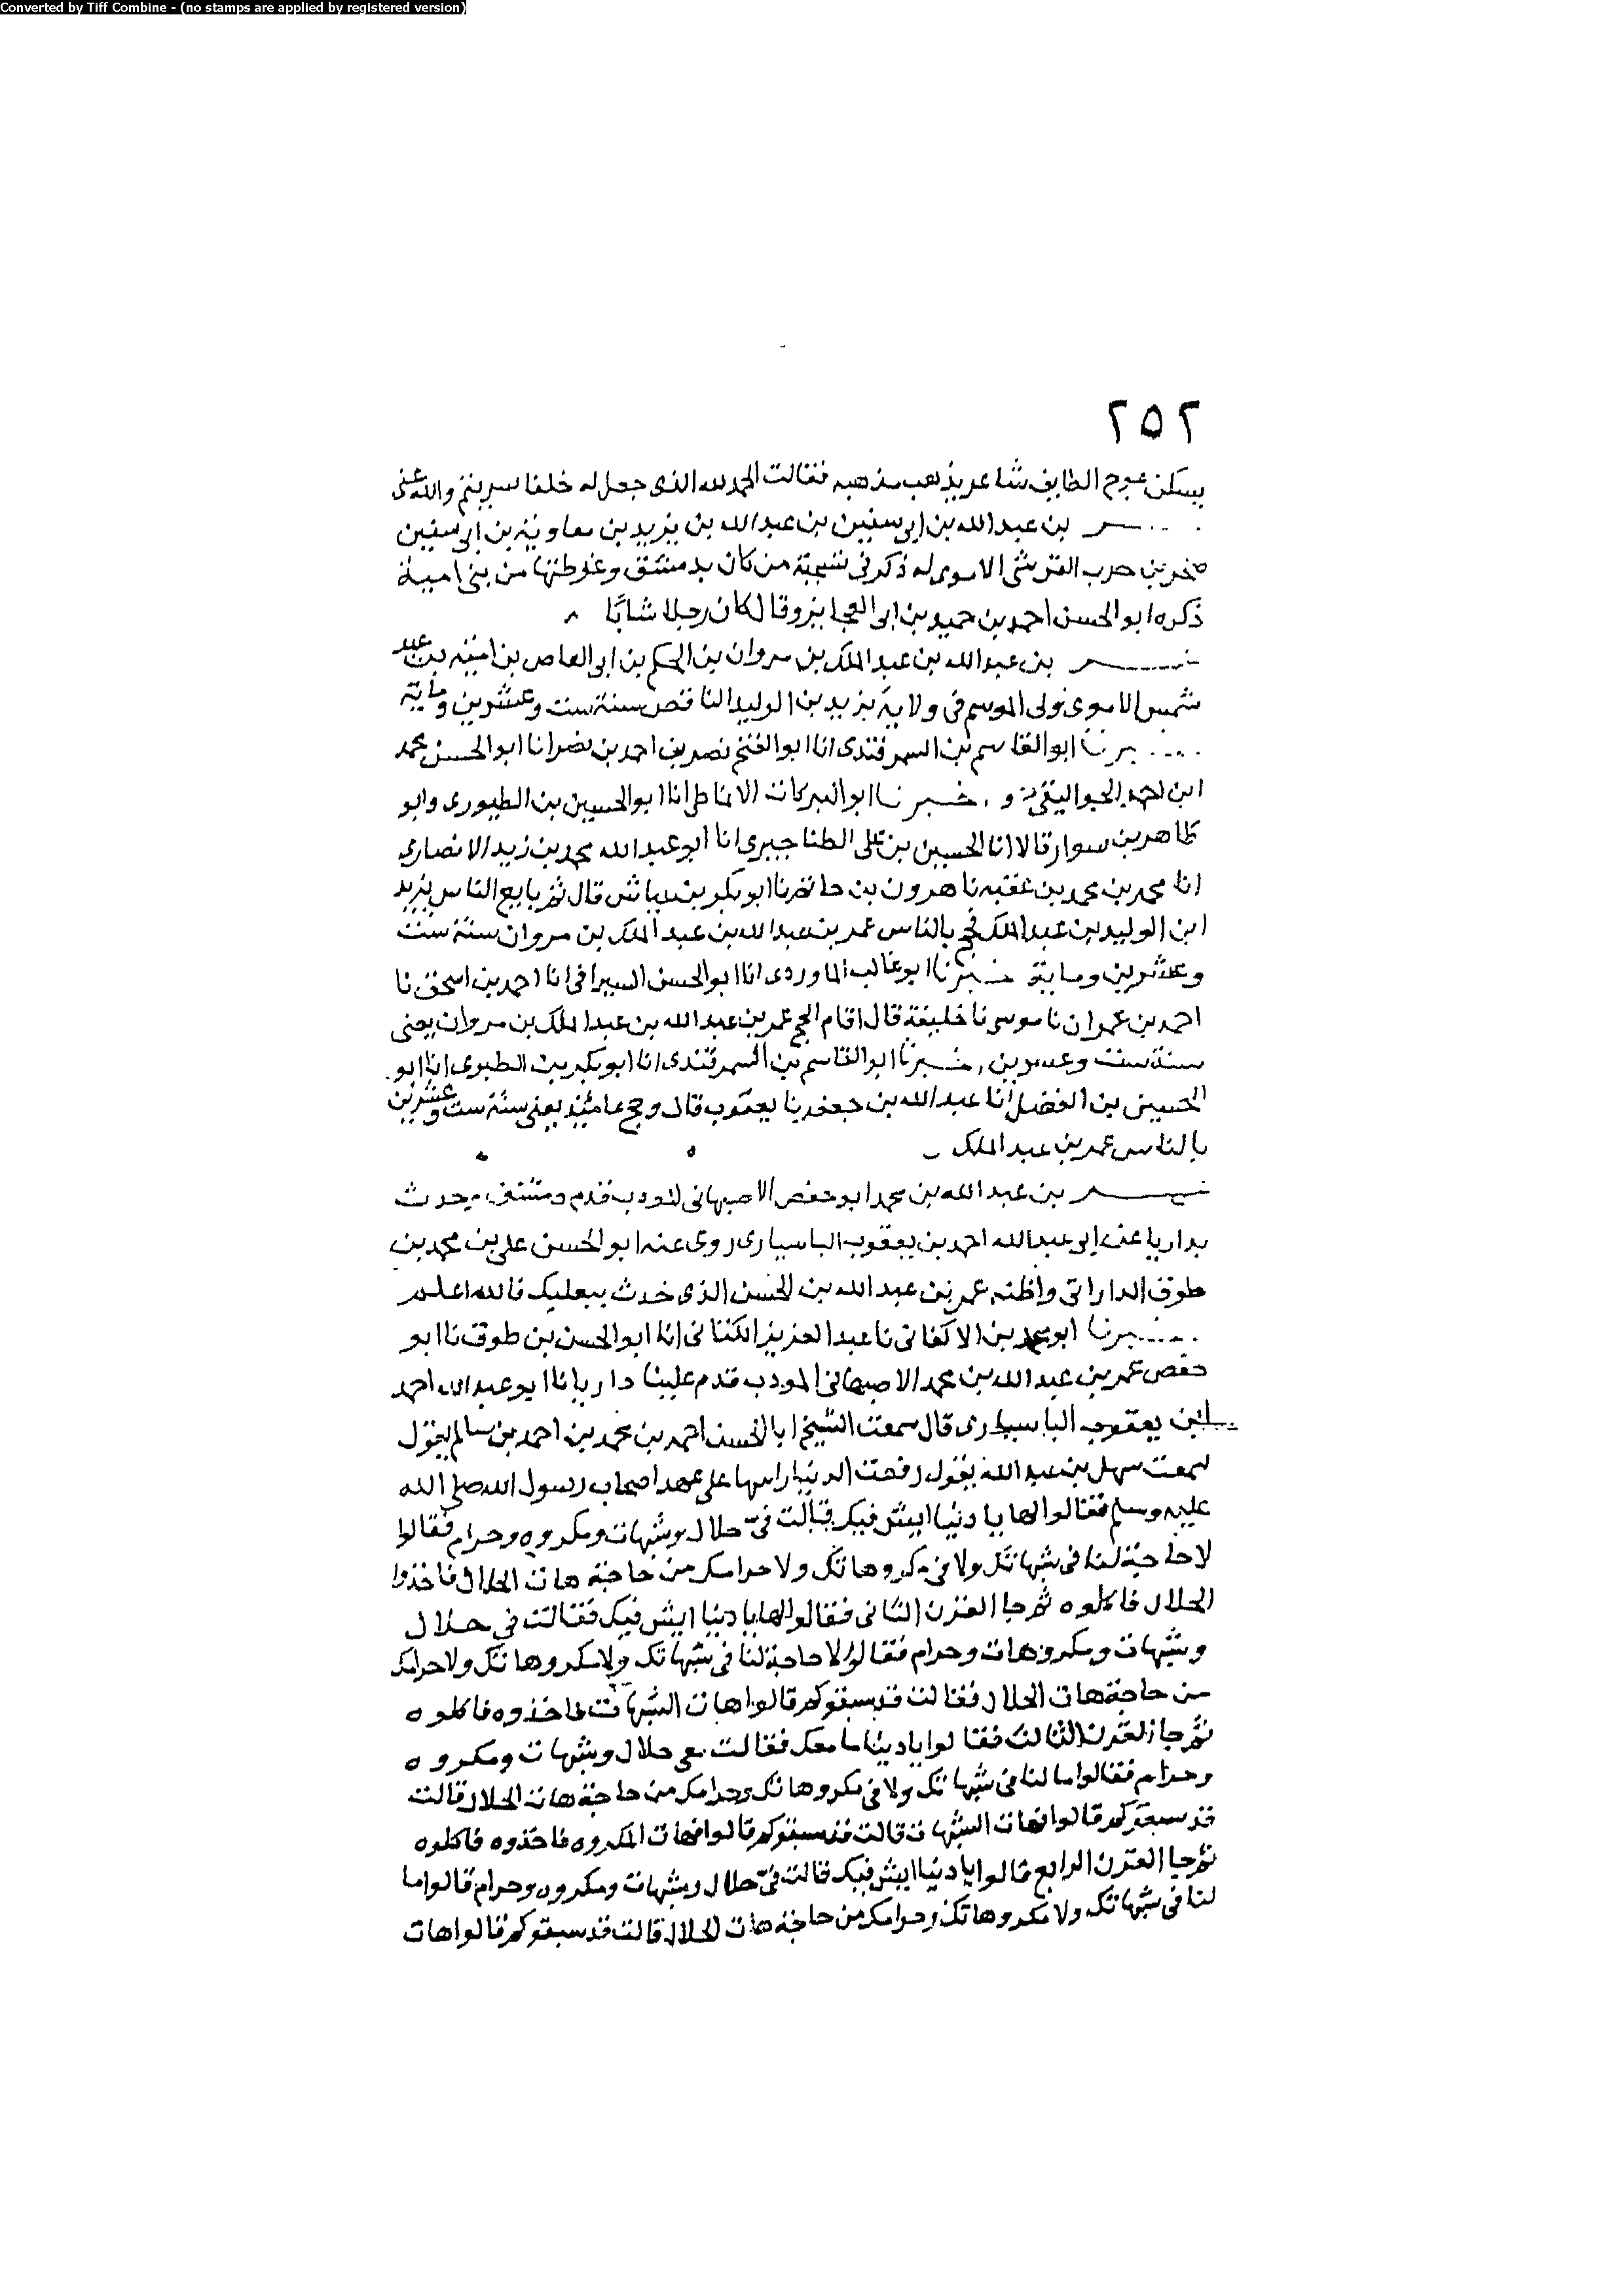 Converted by Tiff Combine - (no stamps are applied by registered version)
٢٥٢
يسكن عرج الطايف شاعر يذهب مذهبه فقالت الحمد لله الذي جعل له خلفا سريتم والله عني
بن عبد الله بن ابي سفين بن عبد الله بن يزيد بن معاوية بن ابي سفين
صخر بن حرب القرشي الاموي له ذكر في تسمية من كان بدمشق وغوطتها من بني امية
ذكره ابو الحسن احمد بن حميد بن ابي العجايز وقال كان رجلا شابا
عمر بن عبد الله بن عبد الملك بن مروان بن الحكم بن ابي العاص بن امية بن عبد
شمس الاموي تولى الموسم في ولاية يزيد بن الوليد الناقص سنة ست وعشرين وماية
برنا ابو القاسم بن السمرقندي انا ابو الفتح نصر بن احمد بن نصر انا ابو الحسن محمد
ابن احمد الجواليقي و خبرنا ابو البركات الانماطي انا ابو الحسين بن الطيوري وابو
طاهر بن سوار قالا انا الحسين بن علي الطناجيري انا ابو عبد الله محمد بن زيد الانصاري
انا محمد بن محمد بن عقبه نا هرون بن حاتم نا ابو بكر بن عياش قال ثم بايع الناس يزيد
ابن الوليد بن عبد الملك فحج بالناس عمر بن عبد الله بن عبد الملك بن مروان سنة ست
وعشرين وماية خبرنا ابو غالب الماوردي انا ابو الحسن السيرافي انا احمد بن اسحق نا
احمد بن عمران نا موسى نا خليفة قال اقام الحج عمر بن عبد الله بن عبد الملك بن مروان يعني
سنة ست وعشرين خبرنا ابو القاسم بن السمرقندي انا ابو بكر بن الطبري انا ابو
الحسين بن الفضل انا عبد الله بن جعفر نا يعقوب قال وحج عامئذ يعني سنة ست وعشرين
بالناس عمر بن عبد الملك
عمر بن عبد الله بن محمد ابو حفص الاصبهاني المودب قدم دمشق وحدث
بداريا عن ابي عبد الله احمد بن يعقوب الباسياري روى عنه ابو الحسن علي بن محمد بن
طوق الداراني واظنه عمر بن عبد الله بن الحسن الذي حدث ببعلبك فالله اعلم
برنا ابو محمد بن الاكفاني نا عبد العزيز الكتاني انا ابو الحسن بن طوق نا ابو
حفص عمر بن عبد الله بن محمد الاصبهاني المودب قدم علينا داريا نا ابو عبد الله احمد
ابن يعقوب الباسياري قال سمعت الشيخ ابا الحسن احمد بن محمد بن احمد بن سالم يقول
سمعت سهل بن عبد الله يقول رفعت الدنيا راسها على عهد اصحاب رسول الله صلى الله
عليه وسلم فقالوا لها يا دنيا ايش فيك قالت فيّ حلال وشبهات ومكروه وحرام فقالوا
لا حاجة لنا في شبهاتك ولا في مكروهاتك ولا حرامك من حاجة هات الحلال فاخذوا
الحلال فاكلوه ثم جا القرن الثاني فقالوا لها يا دنيا ايش فيك فقالت في حلال
وشبهات ومكروهات وحرام فقالوا لا حاجة لنا في شبهاتك ولا مكروهاتك ولا حرامك
من حاجة هات الحلال فقالت قد سبقوكم قالوا هات الشبهات فاخذوه فاكلوه
ثم جا القرن الثالث فقالوا يا دنيا ما معك فقالت معي حلال وشبهات ومكروه
وحرام فقالوا ما لنا في شبهاتك ولا في مكروهاتك وحرامك من حاجة هات الحلال قالت
قد سبقوكم قالوا فهات الشبهات قالت قد سبقوكم قالوا فهات المكروه فاخذوه فاكلوه
ثم جا القرن الرابع قالوا يا دنيا ايش فيك قالت فيّ حلال وشبهات ومكروه وحرام قالوا ما
لنا في شبهاتك ولا مكروهاتك وحرامك من حاجة هات الحلال قالت قد سبقوكم قالوا هات